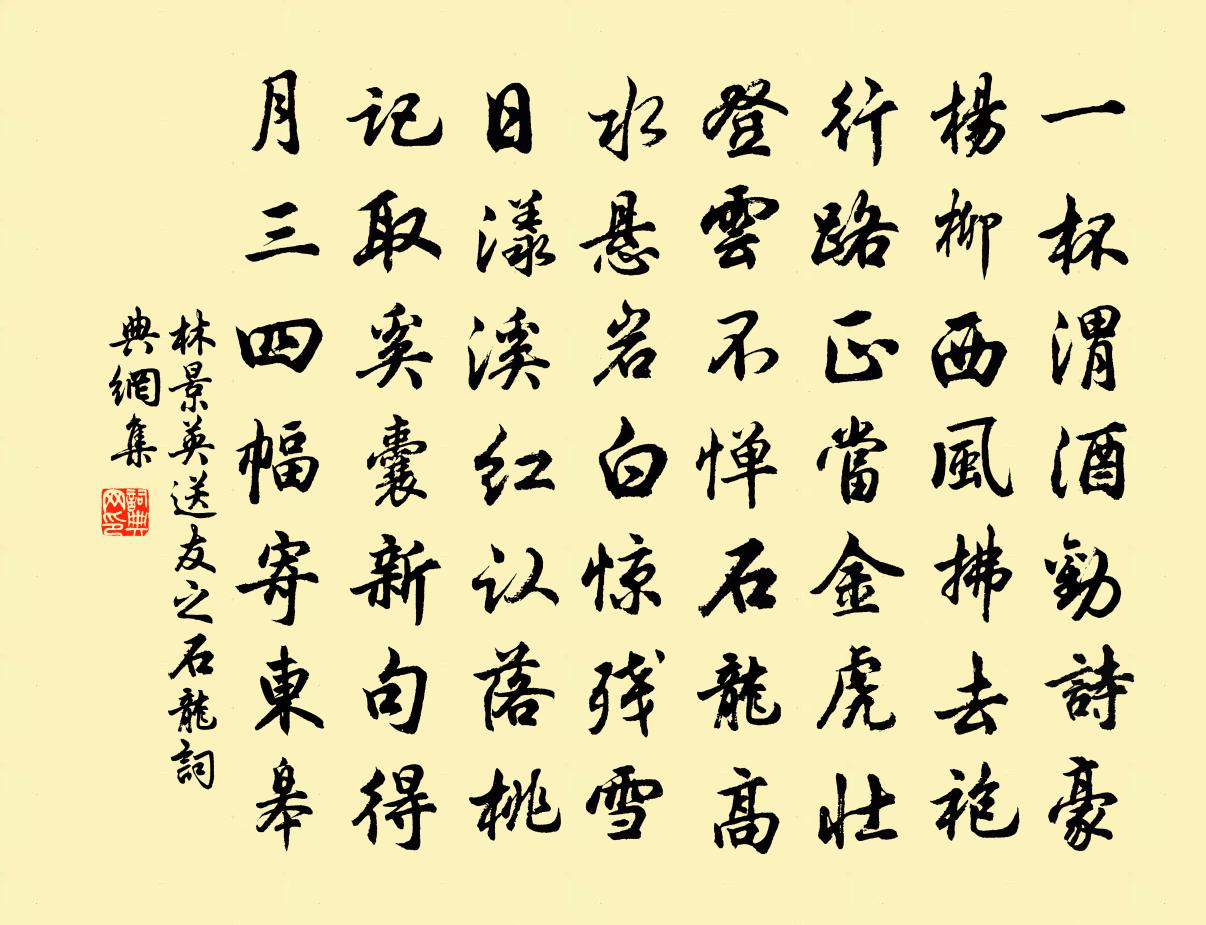 一杯渭酒勸詩豪
楊柳西風拂去袍
行路正當金虎壮
登雲不惮石龍高
水悬岩白惊残雪
日漾溪红认落桃
记取奚囊新句得
月三四幅寄東皋
林景英送友之石龍詞
典網集
詞典网印